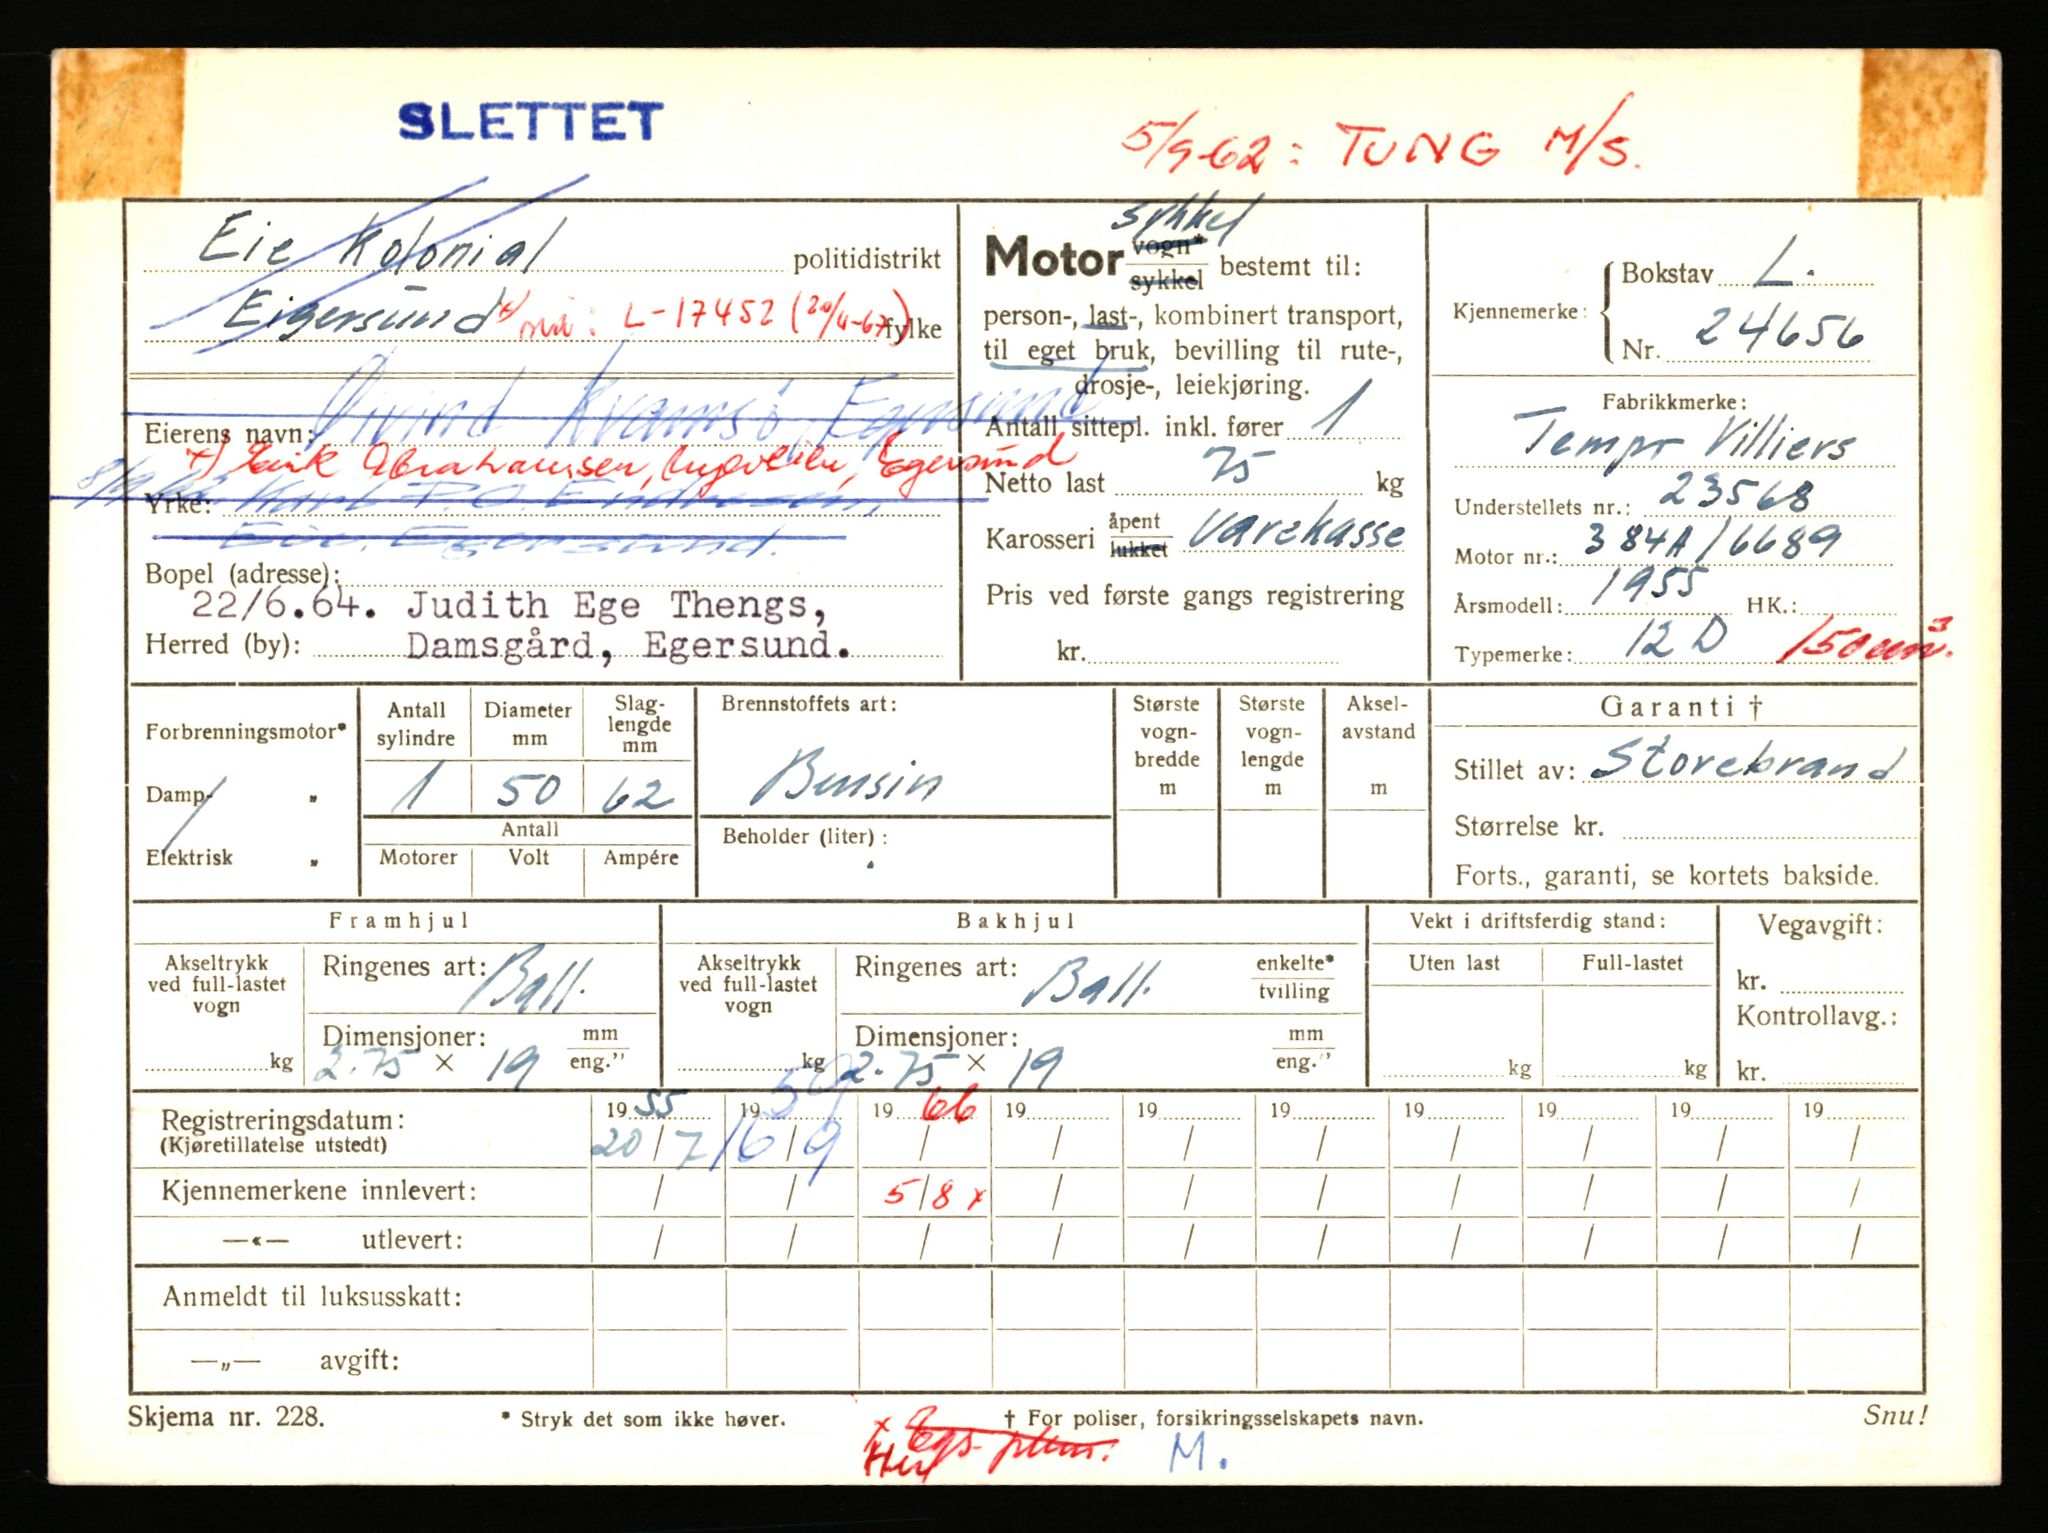 SLETTET
5/9-62: TUNG M/S.
Eie Kolonial politidistrikt
Eigersund x) nå: L-17452 (20/4-67) fylke
Øivind Kvamsø, Egersund
Eierens navn:
x) Erik Abrahamsen, Egersund
8/9/62 Karl P.O. Endresen,
Yrke:
Eie, Egersund.
Bopel (adresse):
22/6.64. Judith Ege Thengs,
Herred (by): Damsgård, Egersund.
sykkel
Motor vogn* sykkel bestemt til:
person-, last-, kombinert transport,
til eget bruk, bevilling til rute-,
drosje-, leiekjøring.
Antall sittepl. inkl. fører 1
Netto last 75 kg
Karosseri åpent lukket varekasse
Pris ved første gangs registrering
kr.
Kjennemerke: Bokstav L.
Nr. 24656
Fabrikkmerke:
Tempo Villiers
Understellets nr.: 23568
Motor nr.: 384A/6689
Årsmodell: 1955 HK.:
Typemerke: 12 D 150 cm³.
Forbrenningsmotor*
Damp- „
Elektrisk „
Antall sylindre 1
Diameter mm 50
Slag-lengde mm 62
Antall
Motorer Volt Ampére
Brennstoffets art:
Bensin
Beholder (liter):
Største vogn-bredde m
Største vogn-lengde m
Aksel-avstand m
Garanti †
Stillet av: Storebrand
Størrelse kr.
Forts., garanti, se kortets bakside.
Framhjul
Akseltrykk ved full-lastet vogn kg
Ringenes art: Ball.
Dimensjoner: mm eng."
2.75 × 19
Bakhjul
Akseltrykk ved full-lastet vogn kg
Ringenes art: Ball. enkelte* tvilling
Dimensjoner: mm eng."
2.75 × 19
Vekt i driftsferdig stand:
Uten last Full-lastet
kg kg
Vegavgift:
kr.
Kontrollavg.:
kr.
Registreringsdatum: 19 55 19 59 19 66 19 19 19 19 19 19 19
(Kjøretillatelse utstedt) 20/7 16/9 / / / / / / / /
Kjennemerkene innlevert: / / 5/8 x / / / / / / /
—«— utlevert: / / / / / / / / / /
Anmeldt til luksusskatt:
—„— avgift:
Skjema nr. 228. * Stryk det som ikke høver. † For poliser, forsikringsselskapets navn. Snu!
x Egs. M.